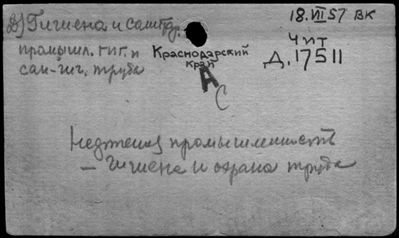 Д) Гигиена и санит.
промышл. гиг. и
сан-гиг. труда
18.VII 57 ВК
Чит
Д. 17511
Краснодарский
край
А
С
Нефтяная промышленность
— гигиена и охрана труда